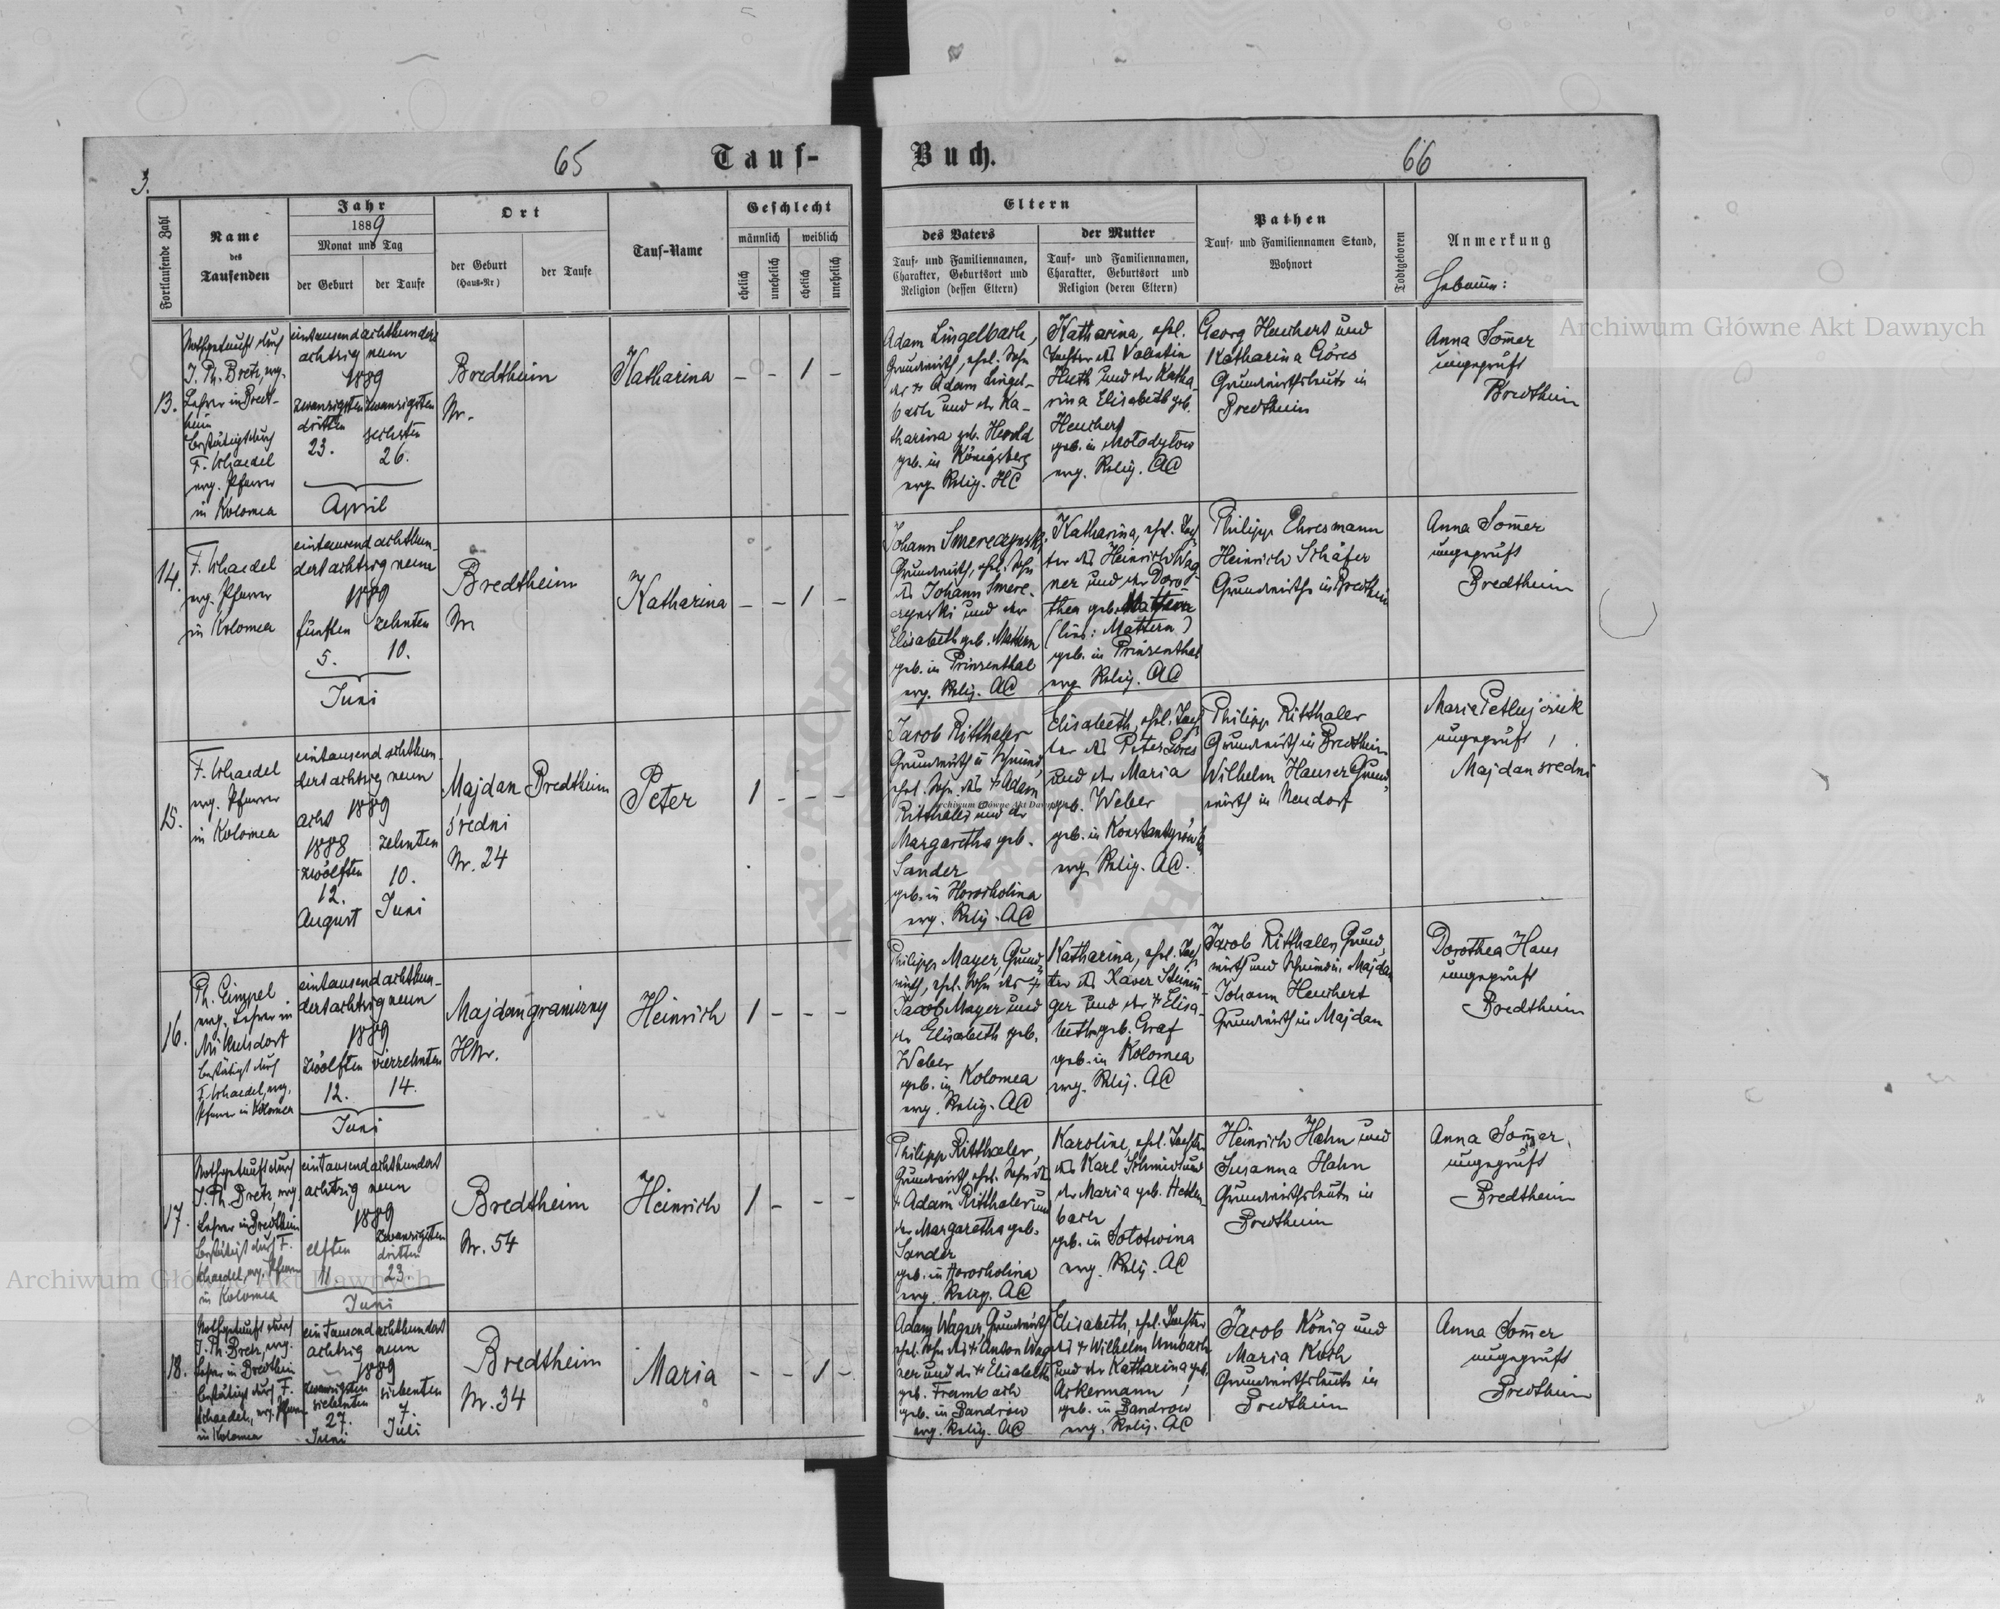 3.
65
Tauf-
Buch.
66
Fortlaufende Zahl
Name
des
Taufenden
Jahr
1889
Monat und Tag
der Geburt
der Taufe
Ort
der Geburt
(Haus-Nr)
der Taufe
Tauf-Name
Geschlecht
männlich
weiblich
ehelich
unehelich
ehelich
unehelich
Eltern
des Vaters
Tauf- und Familiennamen,
Charakter, Geburtsort und
Religion (dessen Eltern)
der Mutter
Tauf- und Familiennamen,
Charakter, Geburtsort und
Religion (deren Eltern)
Pathen
Tauf- und Familiennamen Stand,
Wohnort
Todtgeboren
Anmerkung
Hebamme:
13.
Nothgetauft durch
J. Ph. Bretz, evg.
Lehrer in Bredt-
heim
bestätigt durch
F. Schaedel
evg. Pfarrer
in Kolomea
eintausend achthundert
achtzig neun
1889
zwanzigsten
dritten
23.
zwanzigsten
sechsten
26.
April
Bredtheim
Nr.
Katharina
- - 1 -
Adam Lingelbach,
Grundwirth, ehel. Sohn
des † Adam Lingel-
bach und der Ka-
tharina geb. Herold
geb. in Königsberg
evg. Relig. HC
Katharina, ehel.
Tochter des Valentin
Huth und der Katha-
rina Elisabeth geb.
Heuchert
geb. in Mołodyłow
evg. Relig. AC
Georg Heuchert und
Katharina Göres
Grundwirthsleute in
Bredtheim
Anna Somer
ungeprüft
Bredtheim
14.
F. Schaedel
evg. Pfarrer
in Kolomea
eintausend achthun-
dert achtzig neun
1889
fünften
5.
zehnten
10.
Juni
Bredtheim
Nr.
Katharina
- - 1 -
Johann Smereczynski,
Grundwirth, ehel. Sohn
des Johann Smere-
czynski und der
Elisabeth geb. Mattern
geb. in Prinzenthal
evg. Relig. AC
Katharina, ehel. Toch-
ter des Heinrich Wag-
ner und der Doro-
thea geb. Mattern
(lies: Mattern)
geb. in Prinzenthal
evg. Relig. AC
Philipp Ehresmann
Heinrich Schäfer
Grundwirthe in Bredtheim
Anna Somer
ungeprüft
Bredtheim
15.
F. Schaedel
evg. Pfarrer
in Kolomea
eintausend achthun-
dert achtzig neun
acht 1889
1888
zwölften
12.
August
zehnten
10.
Juni
Majdan
średni
Nr. 24
Bredtheim
Peter
1 - - -
Jacob Ritthaler
Grundwirth u Schmied,
ehel. Sohn des † Adam
Ritthaler und der
Margaretha geb.
Sander
geb. in Horocholina
evg. Relig. AC
Elisabeth, ehel. Toch-
ter des Peter Göres
und der Maria
geb. Weber
geb. in Konstantynówka
evg. Relig. AC.
Philipp Ritthaler
Grundwirth in Bredtheim
Wilhelm Hauser Grund-
wirth in Neudorf
Marie Petlujczuk
ungeprüft,
Majdan średni
16.
Ph. Gimpel
evg. Lehrer in
Mikulsdorf
bestätigt durch
F. Schaedel, evg.
Pfarrer in Kolomea
eintausend achthun-
dert achtzig neun
1889
zwölften
12.
vierzehnten
14.
Juni
Majdan graniczny
HNr.
Heinrich
1 - - -
Philipp Mayer, Grund-
wirth, ehel. Sohn des †
Jacob Mayer und
der Elisabeth geb.
Weber
geb. in Kolomea
evg. Relig. AC
Katharina, ehel. Toch-
ter des Xaver Steinin-
ger und der † Elisa-
beth geb. Graf
geb. in Kolomea
evg. Relig. AC
Jacob Ritthaler, Grund-
wirth und Schmied in Majdan
Johann Heuchert
Grundwirth in Majdan
Dorothea Haus
ungeprüft
Bredtheim
17.
Nothgetauft durch
J. Ph. Bretz, evg
Lehrer in Bredtheim
bestätigt durch F.
Schaedel, evg. Pfarrer
in Kolomea
eintausend achthundert
achtzig neun
1889
elften
11.
zwanzigsten
dritten
23.
Juni
Bredtheim
Nr. 54
Heinrich
1 - - -
Philipp Ritthaler,
Grundwirth, ehel. Sohn des
† Adam Ritthaler und
der Margaretha geb.
Sander
geb. in Horocholina
evg. Relig. AC
Karoline, ehel. Tochter
des Karl Schmid und
der Maria geb.
bach
geb. in Sołotwina
evg. Relig. AC
Heinrich Hahn und
Susanna Hahn
Grundwirthsleute in
Bredtheim
Anna Somer,
ungeprüft
Bredtheim
18.
Nothgetauft durch
J. Ph. Bretz, evg.
Lehrer in Bredtheim
bestätigt durch F.
Schaedel, evg. Pfarrer
in Kolomea
eintausend achthundert
achtzig neun
1889
zwanzigsten
siebenten
27.
Juni
siebenten
7.
Juli
Bredtheim
Nr. 34
Maria
- - 1 -
Adam Wagner, Grundwirth
ehel. Sohn des † Anton Wag-
ner und der † Elisabeth
geb. Frambach
geb. in Bandrow
evg. Relig. AC
Elisabeth, ehel. Tochter
des † Wilhelm Umbach
und der Katharina geb.
Ackermann,
geb. in Bandrow
evg. Relig. AC
Jacob König und
Maria Koch
Grundwirthsleute in
Bredtheim
Anna Somer
ungeprüft
Bredtheim
Archiwum Główne Akt Dawnych
Archiwum Główne Akt Dawnych